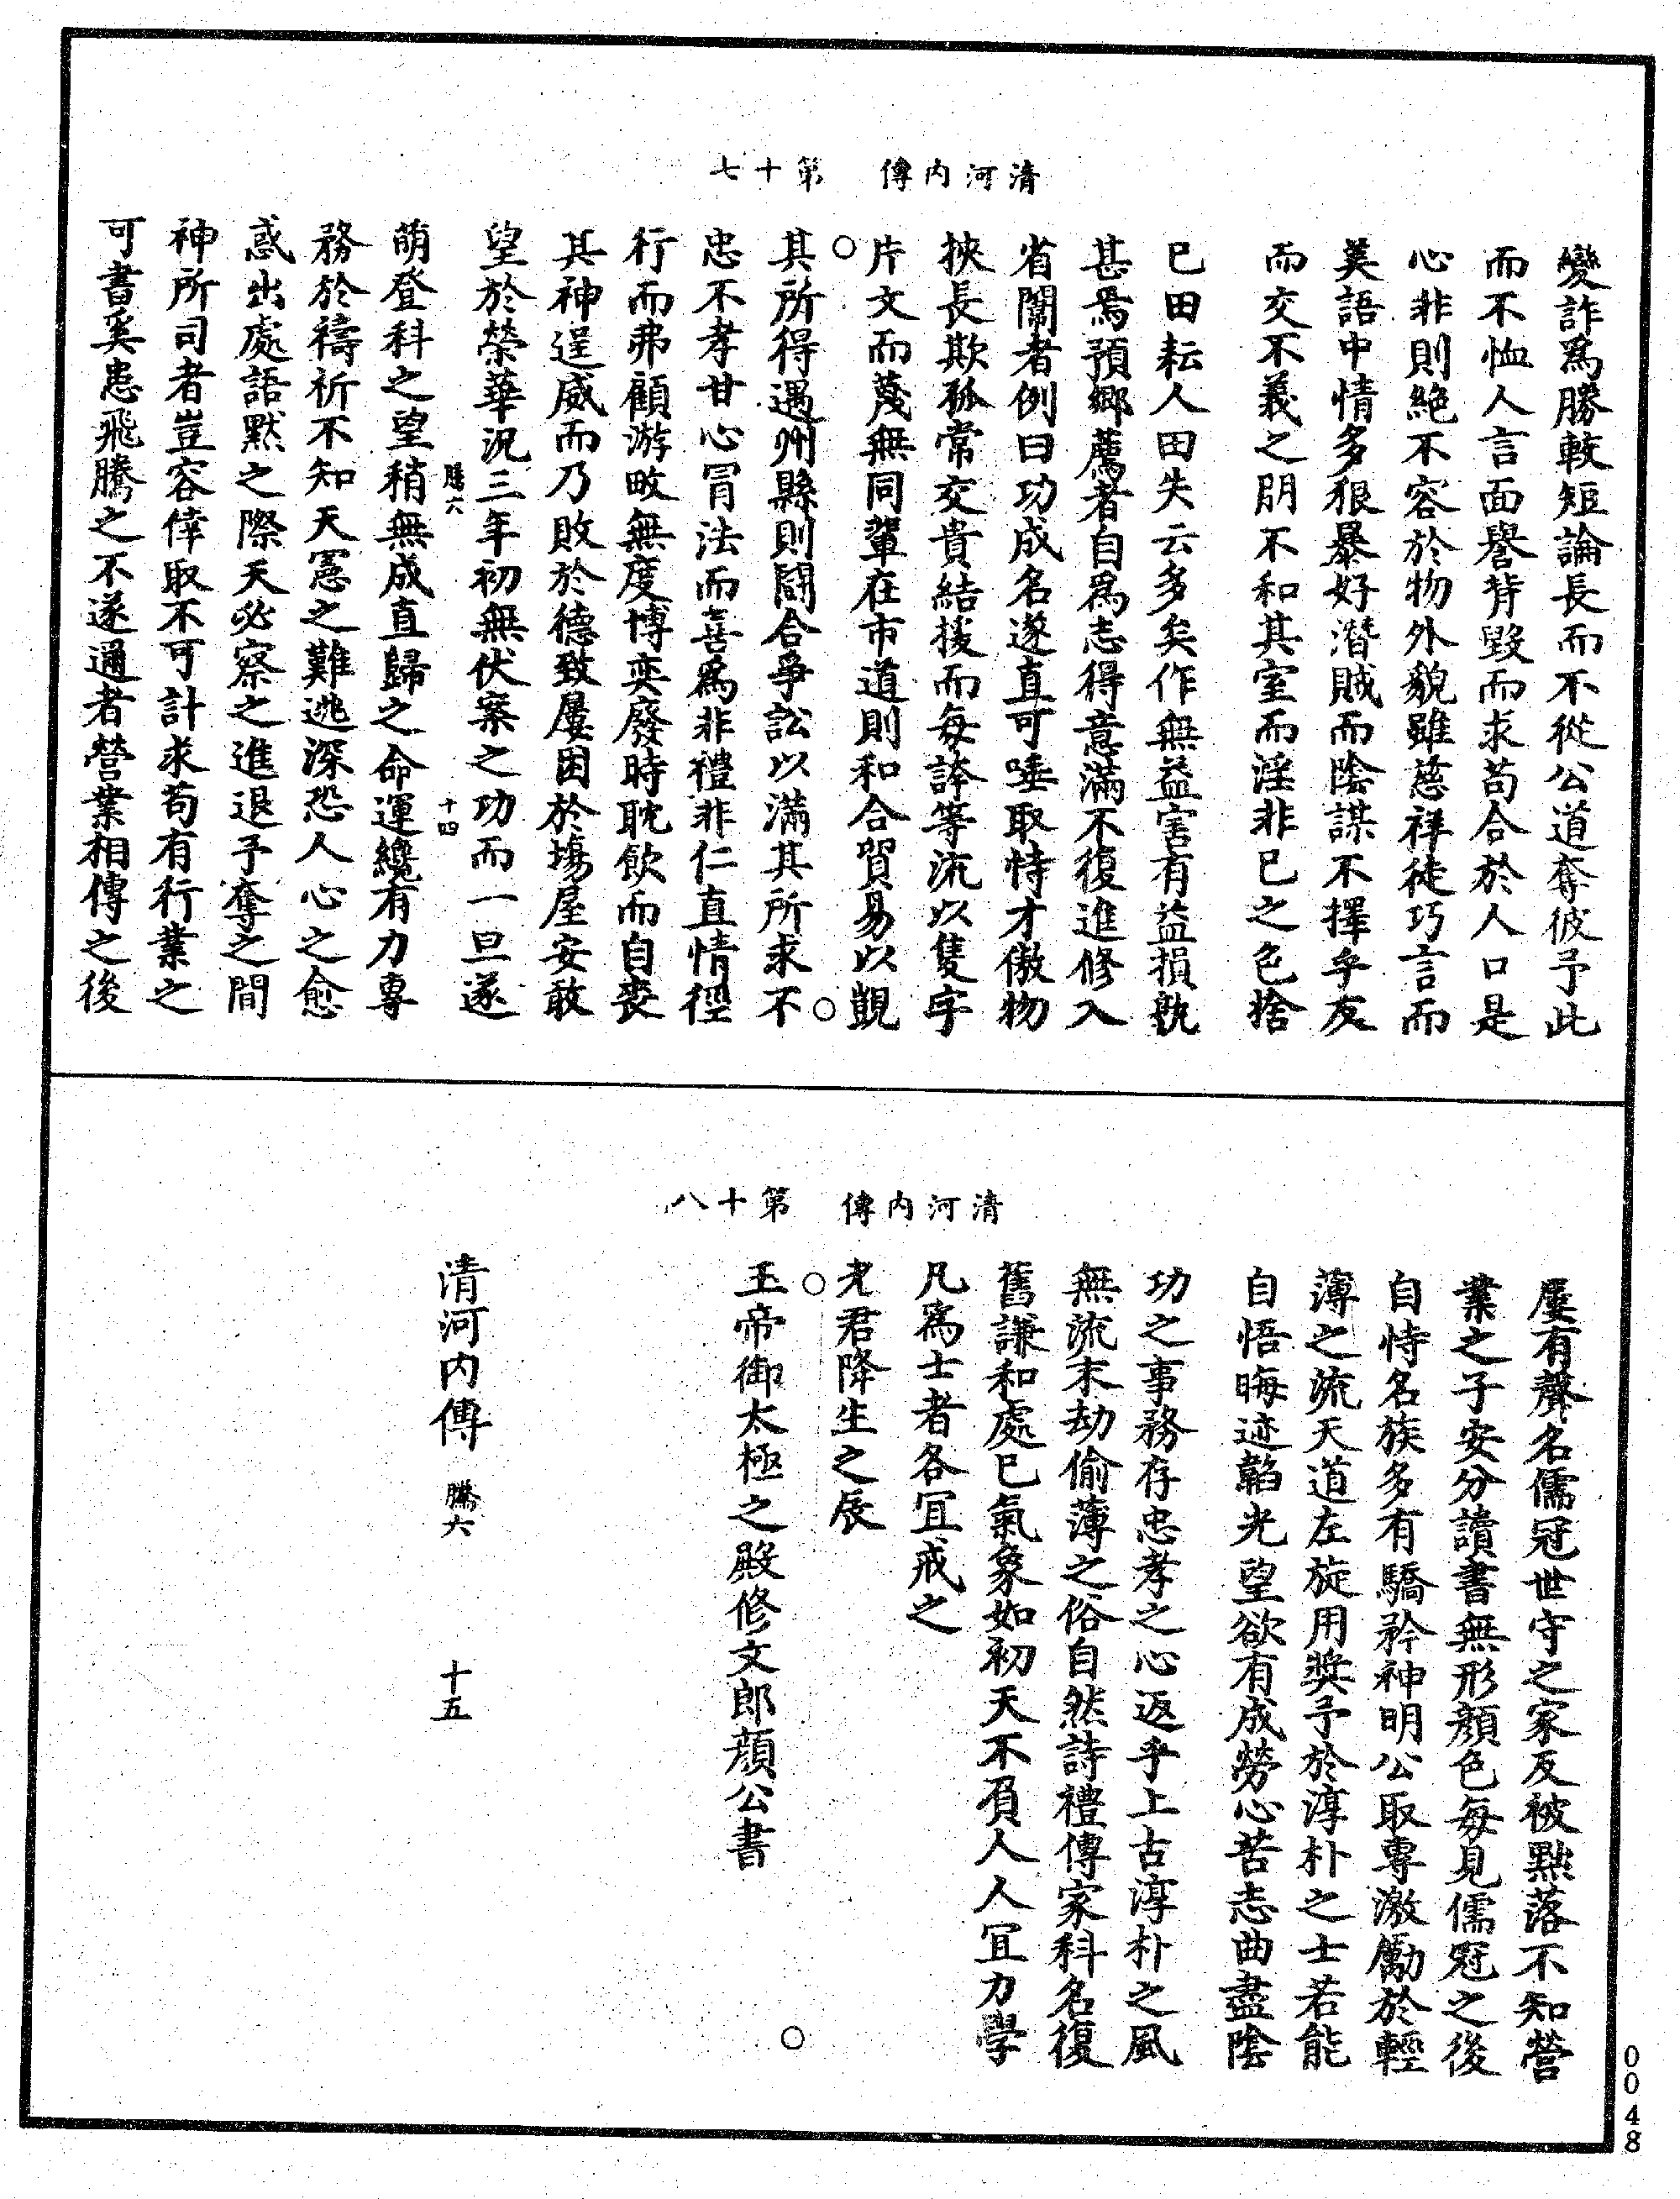 清河內傳　第十七
變詐爲勝較短論長而不從公道奪彼予此
而不恤人言面譽背毀而求苟合於人口是
心非則絶不容於物外貌雖慈祥徒巧言而
美語中情多狠暴好潛賊而陰謀不擇乎友
而交不義之朋不和其室而淫非已之色捨
已田耘人田失云多矣作無益害有益損孰
甚焉預鄉薦者自爲志得意滿不復進修入
省闈者例曰功成名遂直可唾取恃才傲物
挾長欺孤常交貴結援而每誇等流以隻字
片文而蔑無同輩在市道則和合貿易以覬
其所得遇州縣則鬪合爭訟以滿其所求不
忠不孝甘心冐法而喜爲非禮非仁直情徑
行而弗顧游畋無度博奕廢時耽飲而自喪
其神逞威而乃敗於德致屢困於塲屋安敢
望於榮華況三年初無伏案之功而一旦遂
騰六　十四
萌登科之望稍無成直歸之命運纔有力專
務於禱祈不知天憲之難逃深恐人心之愈
惑出處語默之際天必察之進退予奪之間
神所司者豈容倖取不可計求苟有行業之
可書奚患飛騰之不遂邇者營業相傳之後
清河內傳　第十八
屢有聲名儒冠世守之家反被黜落不知營
業之子安分讀書無形顏色每見儒冠之後
自恃名族多有驕矜神明公取專激勵於輕
薄之流天道左旋用奬予於淳朴之士若能
自悟晦迹韜光望欲有成勞心苦志曲盡陰
功之事務存忠孝之心返乎上古淳朴之風
無流末劫偷薄之俗自然詩禮傳家科名復
舊謙和處已氣象如初天不負人人冝力學
凡爲士者各冝戒之
老君降生之辰
玉帝御太極之殿修文郎顏公書
清河內傳　騰六　十五
0048